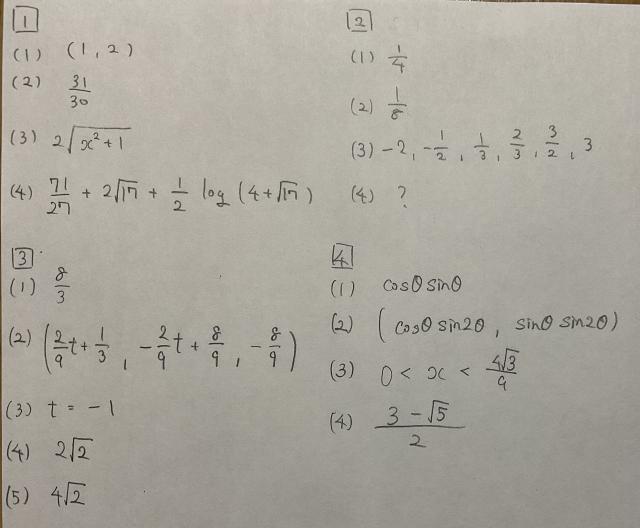 1
(1) (1, 2)
(2) 31/30
(3) 2√(x²+1)
(4) 71/27 + 2√17 + 1/2 log (4+√17)
2
(1) 1/4
(2) 1/8
(3) -2, -1/2, 1/3, 2/3, 3/2, 3
(4) ?
3
(1) 8/3
(2) (2/9 t + 1/3, -2/9 t + 8/9, -8/9)
(3) t = -1
(4) 2√2
(5) 4√2
4
(1) cosθ sinθ
(2) (cosθ sin2θ, sinθ sin2θ)
(3) 0 < x < 4√3/9
(4) (3-√5)/2